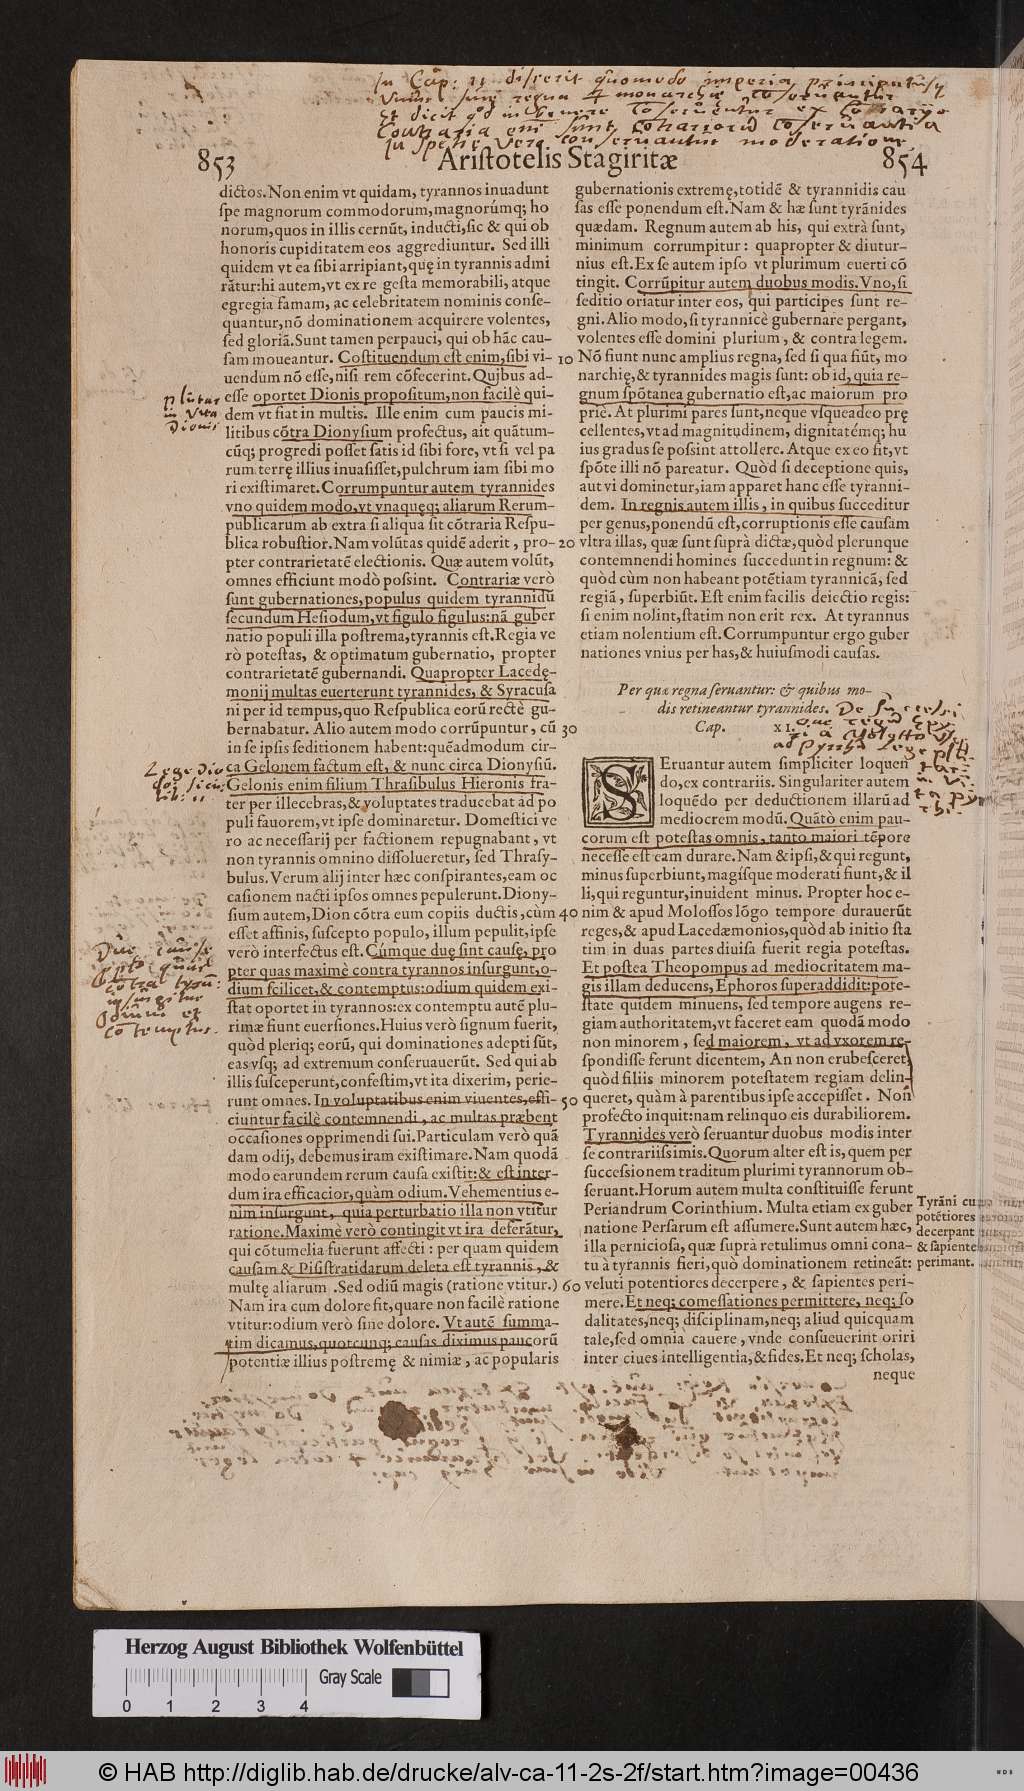 In Cap: 11 disserit quomodo imperia, principatusq;
853 Aristotelis Stagiritæ 854
dictos. Non enim vt quidam, tyrannos inuadunt
spe magnorum commodorum, magnorúmq; ho
norum, quos in illis cernũt, inducti, sic & qui ob
honoris cupiditatem eos aggrediuntur. Sed illi
quidem vt ea sibi arripiant, quę in tyrannis admi
rãtur: hi autem, vt ex re gesta memorabili, atque
egregia famam, ac celebritatem nominis conse-
quantur, nõ dominationem acquirere volentes,
sed gloriã. Sunt tamen perpauci, qui ob hãc cau-
sam moueantur. Cõstituendum est enim, sibi vi-
uendum nõ esse, nisi rem cõfecerint. Quibus ad-
esse oportet Dionis propositum, non facilè qui-
dem vt fiat in multis. Ille enim cum paucis mi-
litibus cõtra Dionysium profectus, ait quãtum-
cũq; progredi posset satis id sibi fore, vt si vel pa
rum terrę illius inuasisset, pulchrum iam sibi mo
ri existimaret. Corrumpuntur autem tyrannides
vno quidem modo, vt vnaquęq; aliarum Rerum-
publicarum ab extra si aliqua sit cõtraria Respu-
blica robustior. Nam volũtas quidẽ aderit, pro-
pter contrarietatẽ electionis. Quæ autem volũt,
omnes efficiunt modò possint. Contrariæ verò
sunt gubernationes, populus quidem tyrannidũ
secundum Hesiodum, vt figulo figulus: nã guber
natio populi illa postrema, tyrannis est. Regia ve
rò potestas, & optimatum gubernatio, propter
contrarietatẽ gubernandi. Quapropter Lacedę-
monij multas euerterunt tyrannides, & Syracusa
ni per id tempus, quo Respublica eorũ rectè gu-
bernabatur. Alio autem modo corrũpuntur, cũ
in se ipsis seditionem habent: quẽadmodum cir-
ca Gelonem factum est, & nunc circa Dionysiũ.
Gelonis enim filium Thrasibulus Hieronis fra-
ter per illecebras, & voluptates traducebat ad po
puli fauorem, vt ipse dominaretur. Domestici ve
rò ac necessarij per factionem repugnabant, vt
non tyrannis omnino dissolueretur, sed Thrasy-
bulus. Verum alij inter hæc conspirantes, eam oc
casionem nacti ipsos omnes pepulerunt. Diony-
sium autem, Dion cõtra eum copiis ductis, cùm
esset affinis, suscepto populo, illum pepulit, ipse
verò interfectus est. Cúmque duę sint causę, pro
pter quas maximè contra tyrannos insurgunt, o-
dium scilicet, & contemptus: odium quidem exi-
stat oportet in tyrannos: ex contemptu autẽ plu-
rimæ fiunt euersiones. Huius verò signum fuerit,
quòd pleriq; eorũ, qui dominationes adepti sũt,
eas vsq; ad extremum conseruauerũt. Sed qui ab
illis susceperunt, confestim, vt ita dixerim, perie-
runt omnes. In voluptatibus enim viuentes, effi-
ciuntur facilè contemnendi, ac multas præbent
occasiones opprimendi sui. Particulam verò quã
dam odij, debemus iram existimare. Nam quodã
modo earundem rerum causa existit: & est inter-
dum ira efficacior, quàm odium. Vehementius e-
nim insurgunt, quia perturbatio illa non vtitur
ratione. Maximè verò contingit vt ira deferãtur,
qui cõtumelia fuerunt affecti: per quam quidem
causam & Pisistratidarum deleta est tyrannis, &
multę aliarum. Sed odiũ magis (ratione vtitur.)
Nam ira cum dolore fit, quare non facilè ratione
vtitur: odium verò sine dolore. Vt autẽ summa-
tim dicamus, quotcunq; causas diximus paucorũ
potentiæ illius postremę & nimiæ, ac popularis
Plutar
in Vita
Dionis
Lege Dio
dor sicu:
lib: 11
10
20
30
40
50
60
gubernationis extremę, totidẽ & tyrannidis cau
sas esse ponendum est. Nam & hæ sunt tyrãnides
quædam. Regnum autem ab his, qui extrà sunt,
minimum corrumpitur: quapropter & diutur-
nius est. Ex se autem ipso vt plurimum euerti cõ
tingit. Corrũpitur autem duobus modis. Vno, si
seditio oriatur inter eos, qui participes sunt re-
gni. Alio modo, si tyrannicè gubernare pergant,
volentes esse domini plurium, & contra legem.
Nõ fiunt nunc amplius regna, sed si qua fiũt, mo
narchię, & tyrannides magis sunt: ob id, quia re-
gnum spõtanea gubernatio est, ac maiorum pro
priè. At plurimi pares sunt, neque vsqueadeo prę
cellentes, vt ad magnitudinem, dignitatémq; hu
ius gradus se possint attollere. Atque ex eo fit, vt
spõte illi nõ pareatur. Quòd si deceptione quis,
aut vi dominetur, iam apparet hanc esse tyranni-
dem. In regnis autem illis, in quibus succeditur
per genus, ponendũ est, corruptionis esse causam
vltra illas, quæ sunt suprà dictæ, quòd plerunque
contemnendi homines succedunt in regnum: &
quòd cùm non habeant potẽtiam tyrannicã, sed
regiã, superbiũt. Est enim facilis deiectio regis:
si enim nolint, statim non erit rex. At tyrannus
etiam nolentium est. Corrumpuntur ergo guber
nationes vnius per has, & huiusmodi causas.
Per quæ regna seruantur: & quibus mo-
dis retineantur tyrannides.
Cap. XI.
SEruantur autem simpliciter loquen
do, ex contrariis. Singulariter autem
loquẽdo per deductionem illarũ ad
mediocrem modũ. Quãtò enim pau-
corum est potestas omnis, tanto maiori tẽpore
necesse est eam durare. Nam & ipsi, & qui regunt,
minus superbiunt, magísque moderati fiunt, & il
li, qui reguntur, inuident minus. Propter hoc e-
nim & apud Molossos lõgo tempore durauerũt
reges, & apud Lacedæmonios, quòd ab initio sta
tim in duas partes diuisa fuerit regia potestas.
Et postea Theopompus ad mediocritatem ma-
gis illam deducens, Ephoros superaddidit: pote-
state quidem minuens, sed tempore augens re-
giam authoritatem, vt faceret eam quodã modo
non minorem, sed maiorem, vt ad vxorem re-
spondisse ferunt dicentem, An non erubesceret,
quòd filiis minorem potestatem regiam delin-
queret, quàm à parentibus ipse accepisset. Non
profecto inquit: nam relinquo eis durabiliorem.
Tyrannides verò seruantur duobus modis inter
se contrariissimis. Quorum alter est is, quem per
successionem traditum plurimi tyrannorum ob-
seruant. Horum autem multa constituisse ferunt
Periandrum Corinthium. Multa etiam ex guber
natione Persarum est assumere. Sunt autem hæc,
illa perniciosa, quæ suprà retulimus omni cona-
tu à tyrannis fieri, quò dominationem retineãt:
veluti potentiores decerpere, & sapientes peri-
mere. Et neq; comessationes permittere, neq; so
dalitates, neq; disciplinam, neq; aliud quicquam
tale, sed omnia cauere, vnde consueuerint oriri
inter ciues intelligentia, & fides. Et neq; scholas,
neque
Tyrãni cu
potẽtiores
decerpant
& sapiente
perimant.
Herzog August Bibliothek Wolfenbüttel
Gray Scale
0 1 2 3 4
© HAB http://diglib.hab.de/drucke/alv-ca-11-2s-2f/start.htm?image=00436